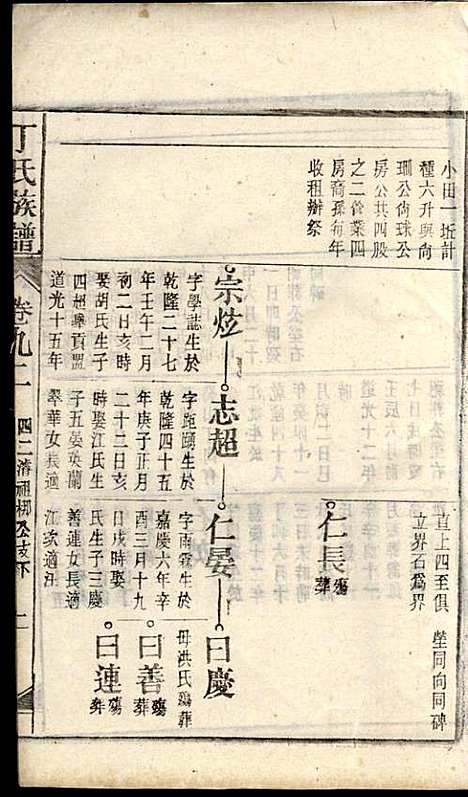 小田一坵計
種六升與尚
珊公尙球公
房公共四股
之二會業四
房裔孫每年
收租辦祭
直上四至俱
立界石爲界
塋同向同碑
仁長
殤
葬
宗炫
志超
仁晏
曰慶
字學誌生於
乾隆二十七
年壬午二月
初二日亥時
娶胡氏生子
四
道光十五年
字距頤生於
乾隆四十五
年庚子正月
二十二日亥
時娶江氏生
子五晏英蘭
翠華女長適
字雨霖生於
嘉慶六年辛
酉三月十九
日戌時娶
氏生子三慶
善連女長適
江次適汪
母洪氏殤葬
曰善
殤
葬
曰連
殤
葬
丁氏族譜
卷九二